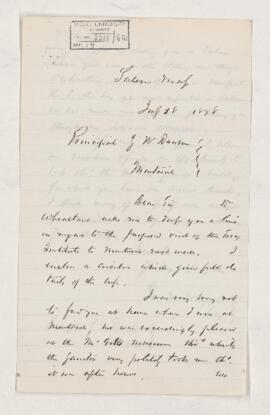 McGILL UNIVERSITY
ARCHIVES
ACC. NO. 2211/62
REF. 14
Salem Mass
July 28 1878
Principal J W Dawson
Montreal
Dear Sir
Wheatland asks me to drop you a line
in regard to the proposed visit of the Essex
Institute to Montreal next week. I
enclose a circular which gives full de
tails of the trip.
I was very sorry not
to find you at home when I was at
Montreal, but was exceedingly pleased
at the McGill museum thro' which
the Janitor very politely took me tho'
it was after hours.